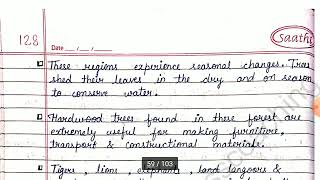 128
Date __/__/__
saathi
These regions experience seasonal changes. Trees
shed their leaves in the dry and on season
to conserve water.
Hardwood trees found in these forest are
extremely useful for making furniture,
transport & constructional materials.
Tigers, lions, elephants, land langoors &
59 / 103